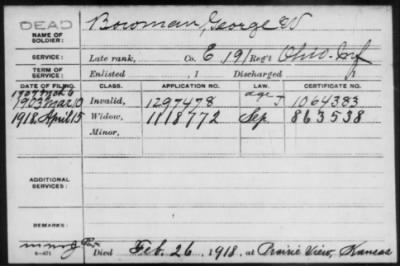 DEAD Bowman, George W
NAME OF SOLDIER:
SERVICE: Late rank, Co. E 191 Reg't Ohio Inf
TERM OF SERVICE: Enlisted , 1 Discharged , 1
DATE OF FILING. CLASS. APPLICATION NO. LAW. CERTIFICATE NO.
1907
1903 Mar 10 Invalid, 1297478 age 1064383
1918 April 15 Widow, 1118772 Sep. 863538
Minor,
ADDITIONAL SERVICES:
REMARKS:
Died Feb. 26, 1918, at Prairie View, Kansas